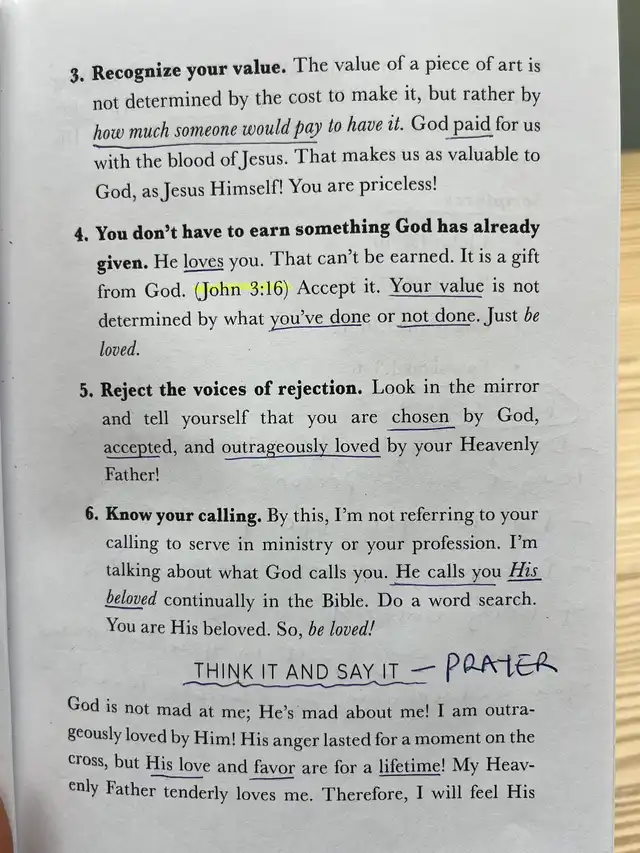 3. Recognize your value. The value of a piece of art is
not determined by the cost to make it, but rather by
how much someone would pay to have it. God paid for us
with the blood of Jesus. That makes us as valuable to
God, as Jesus Himself! You are priceless!
4. You don't have to earn something God has already
given. He loves you. That can't be earned. It is a gift
from God. (John 3:16) Accept it. Your value is not
determined by what you've done or not done. Just be
loved.
5. Reject the voices of rejection. Look in the mirror
and tell yourself that you are chosen by God,
accepted, and outrageously loved by your Heavenly
Father!
6. Know your calling. By this, I'm not referring to your
calling to serve in ministry or your profession. I'm
talking about what God calls you. He calls you His
beloved continually in the Bible. Do a word search.
You are His beloved. So, be loved!
THINK IT AND SAY IT — PRAYER
God is not mad at me; He's mad about me! I am outra-
geously loved by Him! His anger lasted for a moment on the
cross, but His love and favor are for a lifetime! My Heav-
enly Father tenderly loves me. Therefore, I will feel His